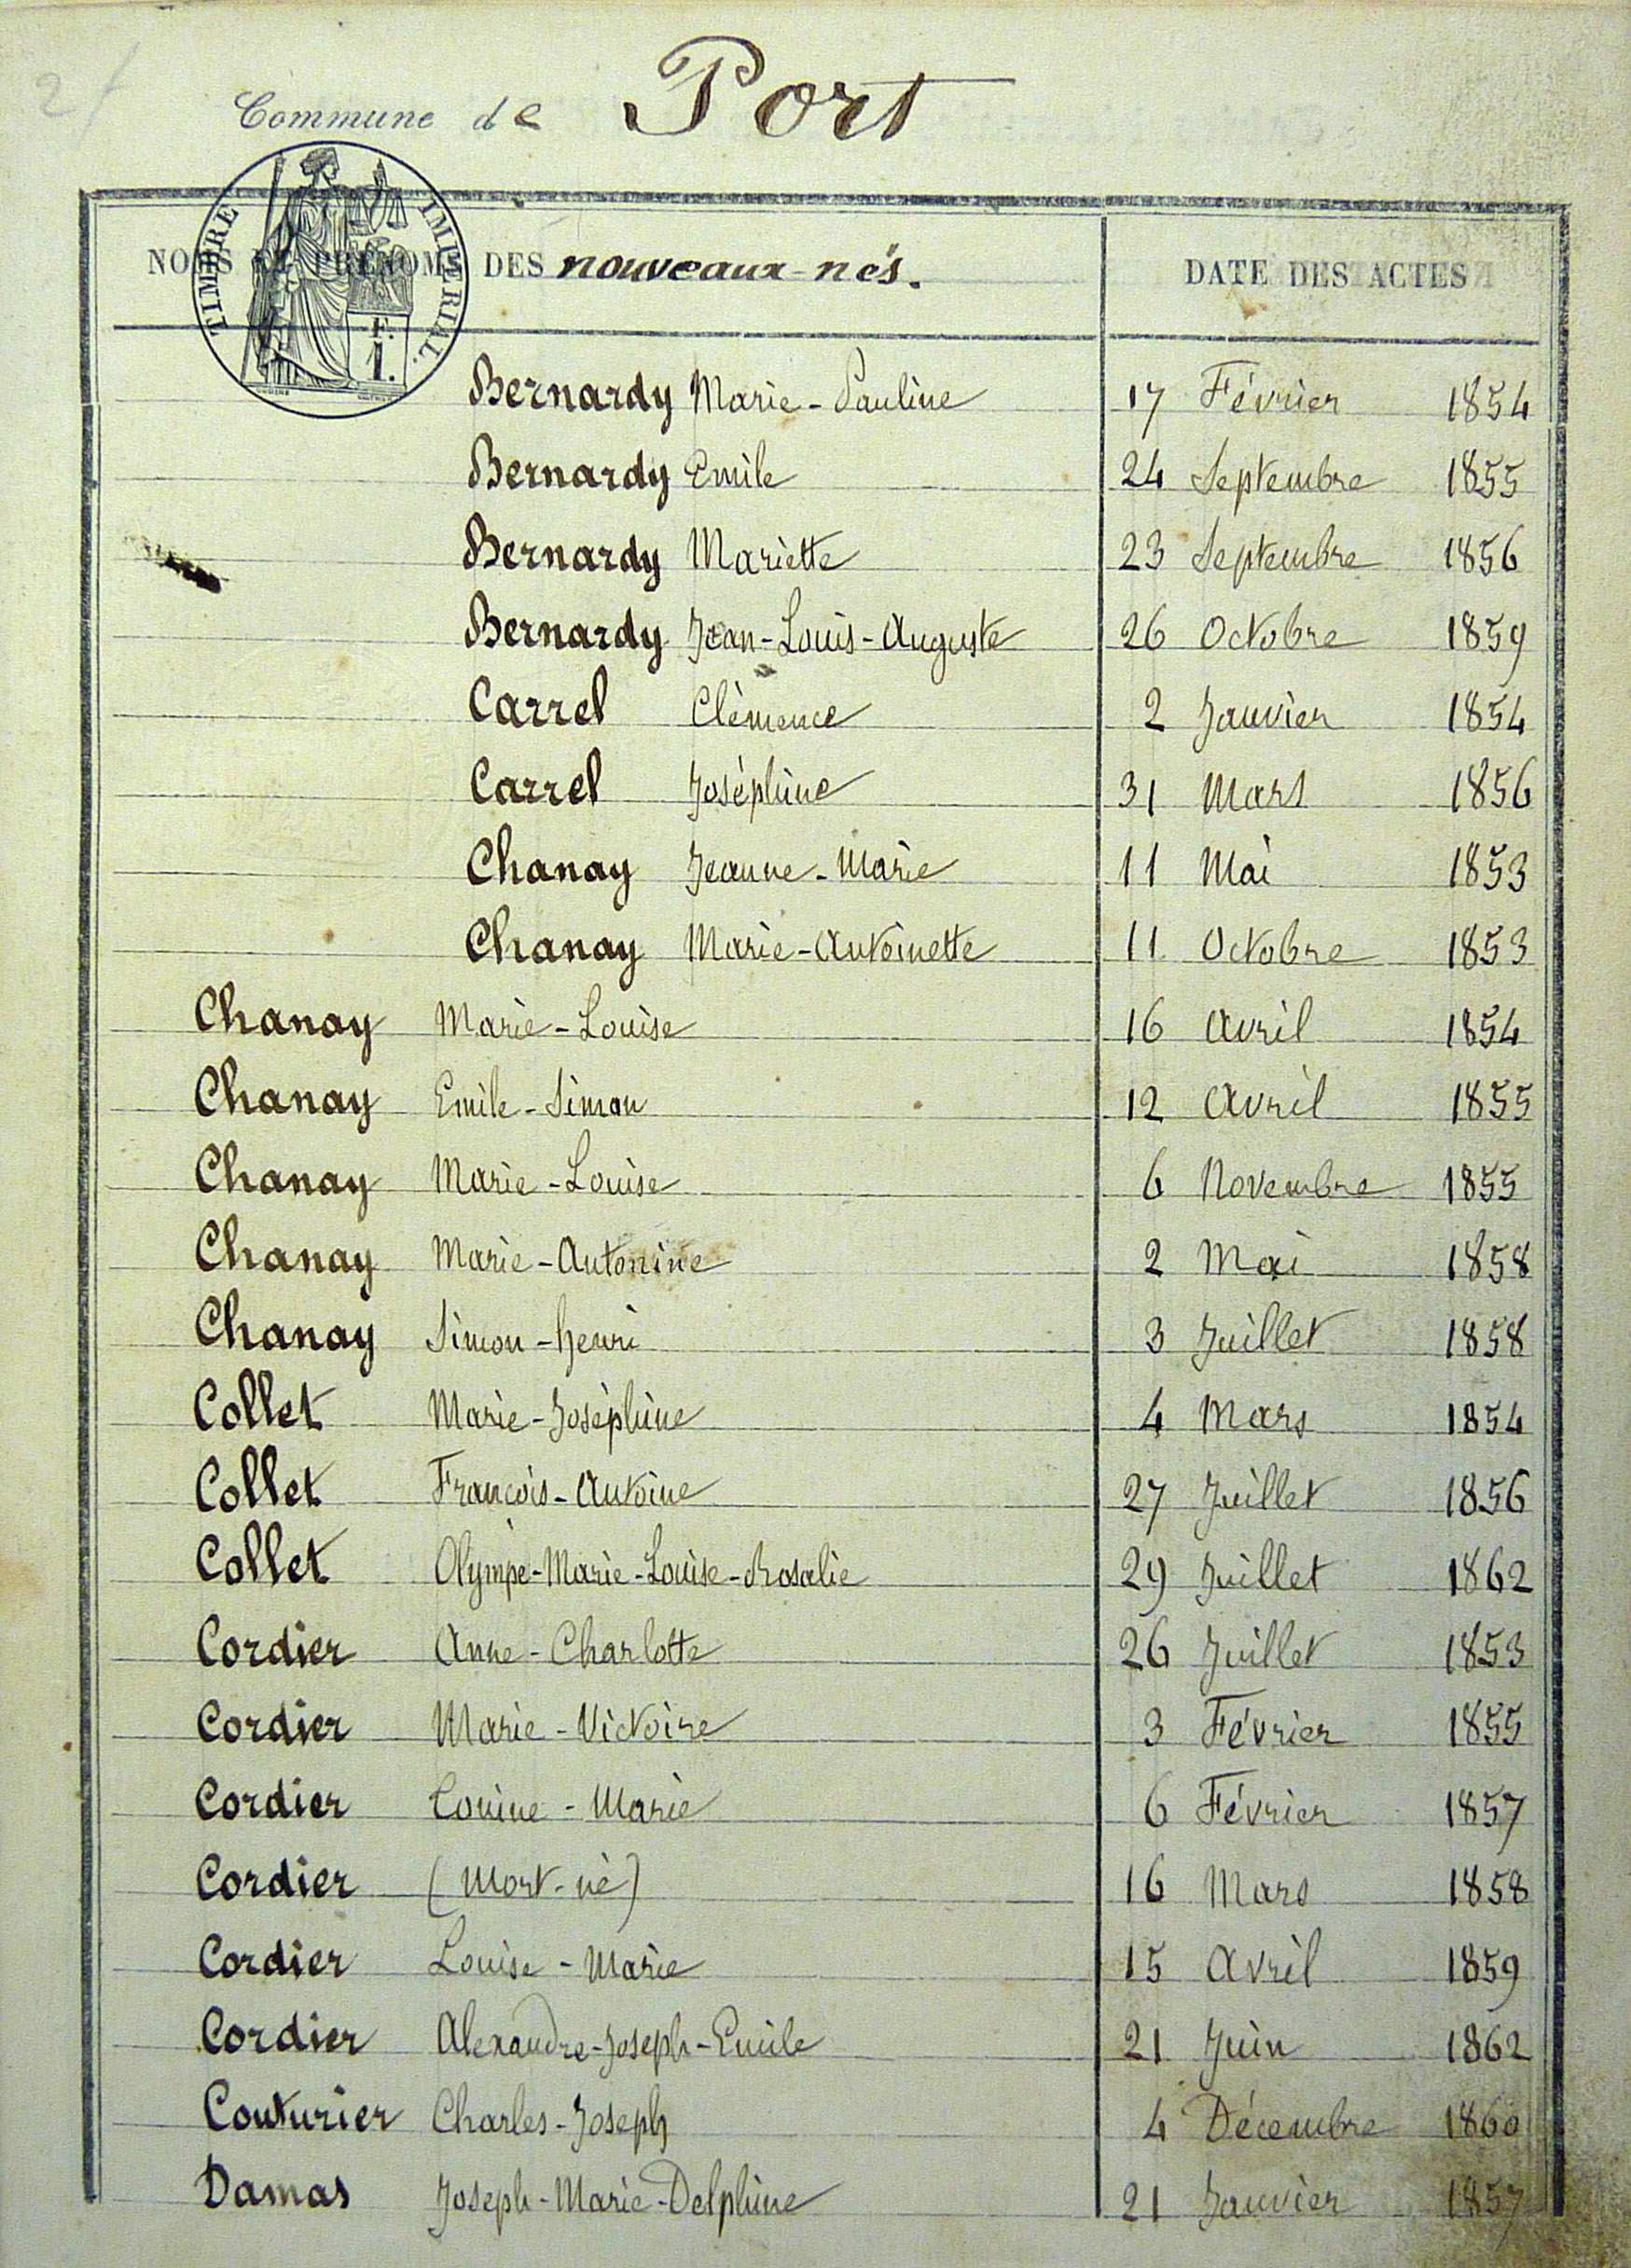 2/
Commune de Port
TIMBRE IMPERIAL.
F.
1.
NOMS ET PRÉNOMS DES nouveaux-nés. DATE DES ACTES
Bernardy Marie-Pauline 17 Février 1854
Bernardy Emile 24 Septembre 1855
Bernardy Mariette 23 Septembre 1856
Bernardy Jean-Louis-Auguste 26 Octobre 1859
Carrel Clémence 2 Janvier 1854
Carrel Joséphine 31 Mars 1856
Chanay Jeanne-Marie 11 Mai 1853
Chanay Marie-Antoinette 11 Octobre 1853
Chanay Marie-Louise 16 Avril 1854
Chanay Emile-Simon 12 Avril 1855
Chanay Marie-Louise 6 Novembre 1855
Chanay Marie-Antonine 2 Mai 1858
Chanay Simon-henri 3 Juillet 1858
Collet Marie-Joséphine 4 Mars 1854
Collet François-Antoine 27 Juillet 1856
Collet Olympe-Marie-Louise-Rosalie 29 Juillet 1862
Cordier Anne-Charlotte 26 Juillet 1853
Cordier Marie-Victoire 3 Février 1855
Cordier Marie 6 Février 1857
Cordier (Mort-né) 16 Mars 1858
Cordier Louise-Marie 15 Avril 1859
Cordier Alexandre-Joseph-Emile 21 Juin 1862
Couturier Charles-Joseph 4 Décembre 1860
Damas Joseph-Marie-Delphine 21 Janvier 1857